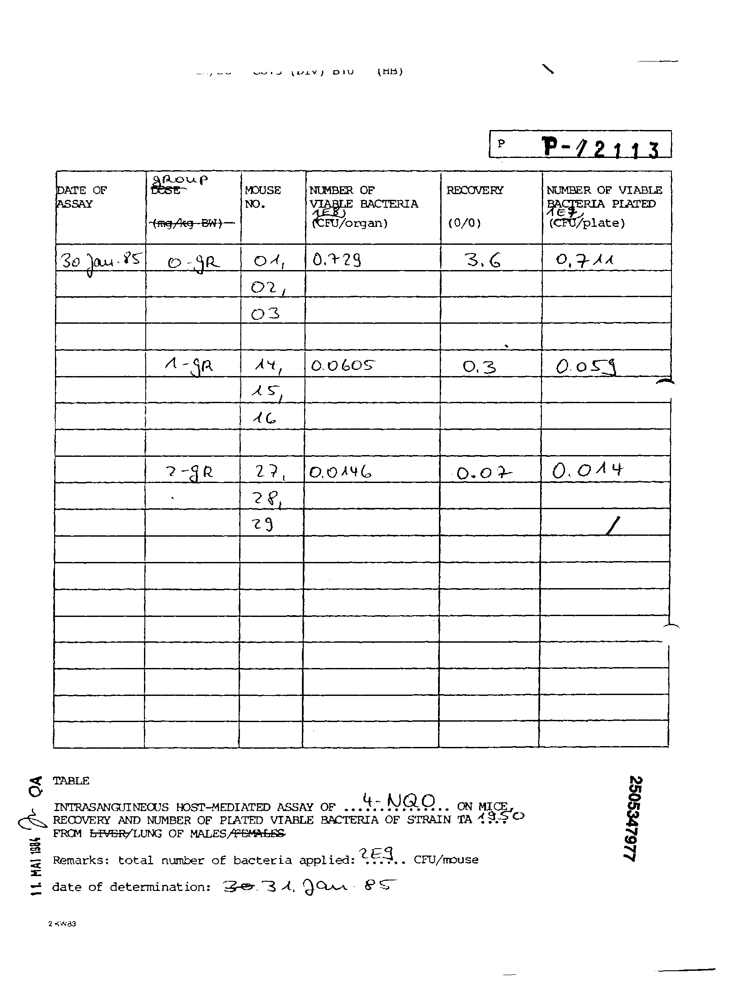 (HB)
P P-12113
DATE OF ASSAY group DOSE (mg/kg BW) MOUSE NO. NUMBER OF VIABLE BACTERIA 1E8) (CFU/organ) RECOVERY (0/0) NUMBER OF VIABLE BACTERIA PLATED 1E7 (CFU/plate)
30 Jan. 85 0-gR 01, 0.729 3.6 0,711
02,
03
1-gR 14, 0.0605 0.3 0.059
15,
16
2-gR 27, 0.0146 0.07 0.014
28,
29
TABLE
INTRASANGUINEOUS HOST-MEDIATED ASSAY OF ....4-NQO.... ON MICE,
RECOVERY AND NUMBER OF PLATED VIABLE BACTERIA OF STRAIN TA 1950
FROM LIVER/LUNG OF MALES/FEMALES
Remarks: total number of bacteria applied: 2E9 CFU/mouse
date of determination: 30. 31. Jan. 85
2 KW83
11. MAI 1984 QA
2505347977